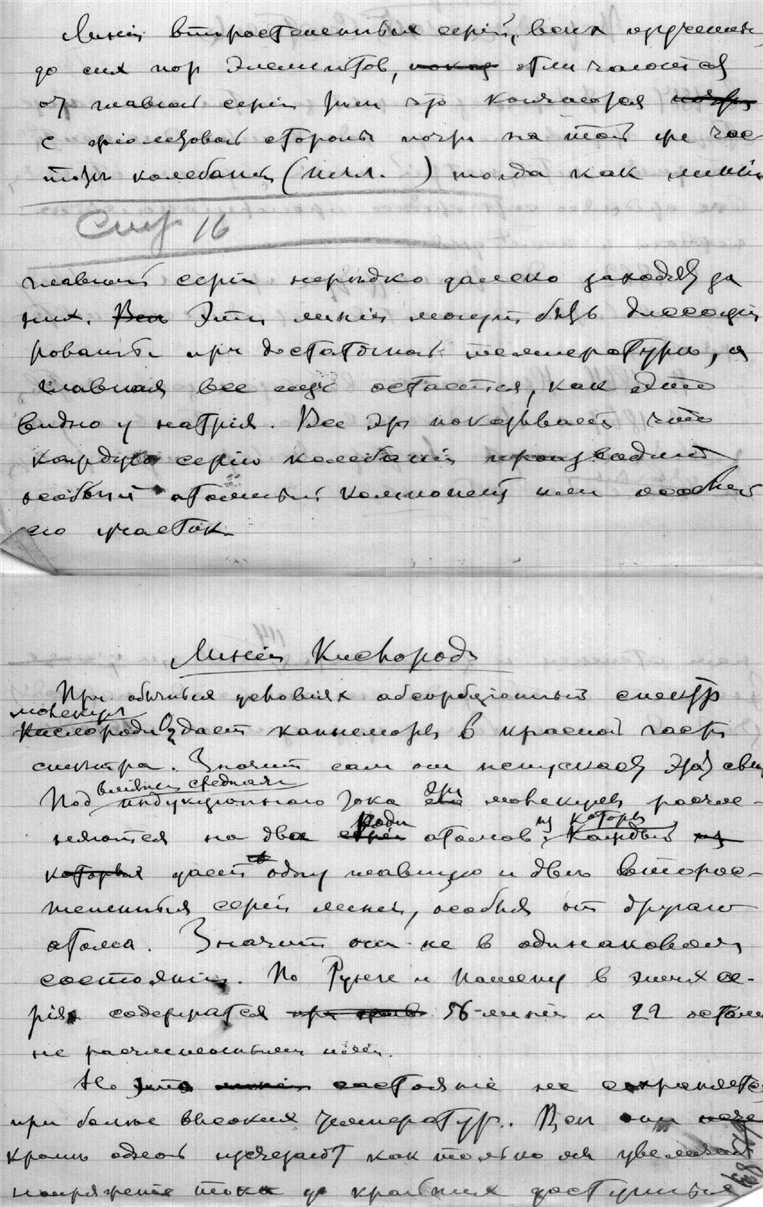 Линіи второстепенныя серій, всѣх изученных
до сих пор элементов, отличаются
от главной серіи тѣм что кончаются
с фіолетовой стороны почти на той же час
тотѣ колебаній (илл. ) тогда как линіи
Стр 16
главной серіи нерѣдко далеко заходят за
них. Эти линіи могут быть диссоціи
рованы при достаточной температурѣ, а
главная все еще остается, как это
видно у натрія. Все это показывает что
каждую серію колебаній производит
особый атомный компонент или особый
его участок
Линіи Кислорода
При обычных условіях абсорбціонный спектр
молекул
кислорода дает каннелюры в красной части
спектра. Значит сам он испускает этот свѣт
вліянием средняго
Под индукціоннаго тока эти молекулы расчле-
няются на два рода атомов, из которых
дает одну главную и двѣ второс-
тепенныя серіи линій, особыя от другаго
атома. Значит они не в одинаковом
состояніи. По Рунге и Пашену в этих се-
ріях содержатся 56 линій и 22 остаются
не расчлененными
Но состояніе не сохраняется
при болѣе высоких температур. Всѣ они
кромѣ одной изчезают как только мы увеличим
напряженіе тока до крайних доступных